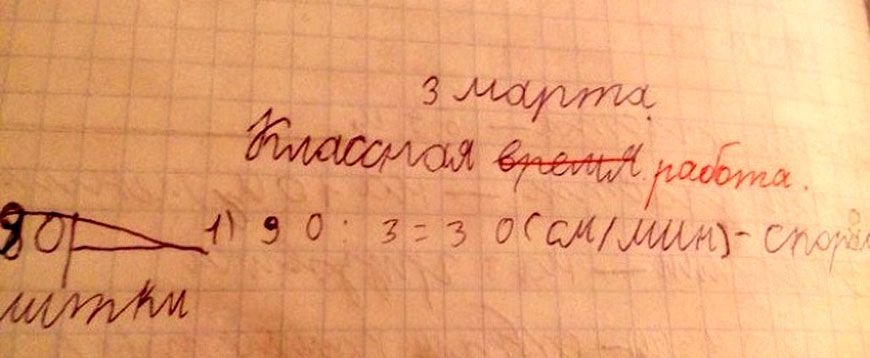 3 марта.
Классная время работа.
90
1) 90 : 3 = 30 (см/мин) - скоро
литки